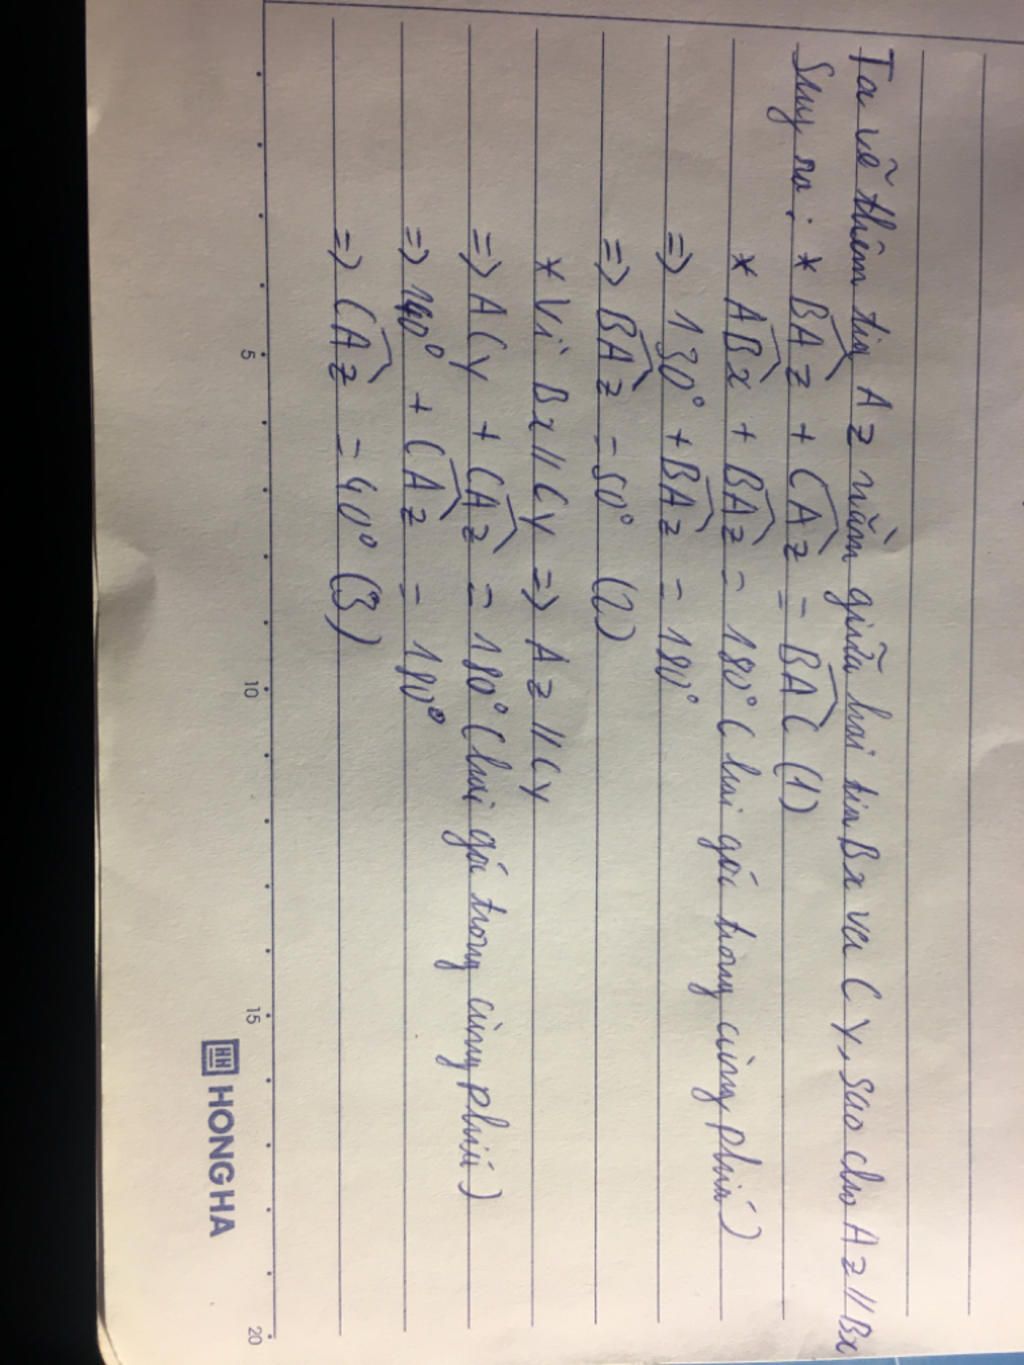 Ta vẽ thêm tia Az nằm giữa hai tia Bx và Cy, sao cho Az // Bx
Suy ra: * BAz + CAz = BAC (1)
* ABx + BAz = 180° (hai góc trong cùng phía)
=> 130° + BAz = 180°
=> BAz = 50° (2)
* Vì Bx // Cy => Az // Cy
=> ACy + CAz = 180° (hai góc trong cùng phía)
=> 140° + CAz = 180°
=> CAz = 40° (3)
5 10 15 20
HH HONG HA